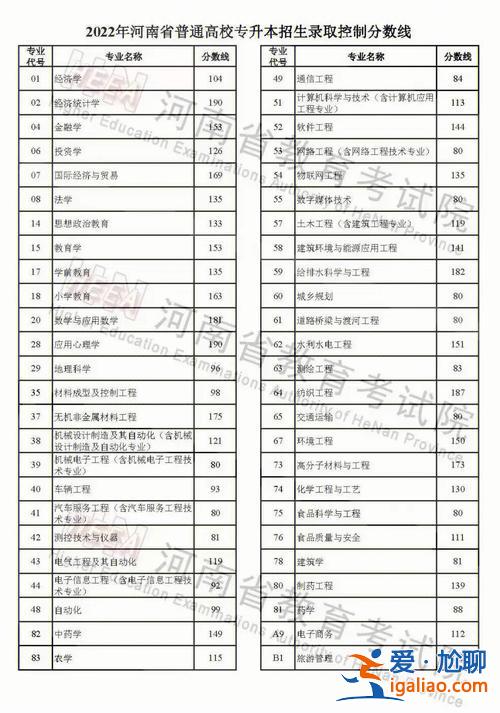 2022年河南省普通高校专升本招生录取控制分数线
专业代号 专业名称 分数线
01 经济学 104
02 经济统计学 190
04 金融学 153
06 投资学 126
07 国际经济与贸易 169
08 法学 135
14 思想政治教育 133
15 教育学 153
17 学前教育 135
18 小学教育 163
20 数学与应用数学 181
28 应用心理学 190
29 地理科学 96
35 材料成型及控制工程 98
37 无机非金属材料工程 175
38 机械设计制造及其自动化（含机械设计制造及自动化专业） 121
39 机械电子工程（含机械电子工程技术专业） 80
40 车辆工程 93
41 汽车服务工程（含汽车服务工程技术专业） 80
42 测控技术与仪器 81
43 电气工程及其自动化 119
44 电子信息工程（含电子信息工程技术专业） 92
48 自动化 99
82 中药学 149
83 农学 115
49 通信工程 84
51 计算机科学与技术（含计算机应用工程专业） 113
52 软件工程 144
53 网络工程（含网络工程技术专业） 80
54 物联网工程 135
55 数字媒体技术 80
57 土木工程（含建筑工程专业） 119
58 建筑环境与能源应用工程 141
59 给排水科学与工程 182
60 城乡规划 80
61 道路桥梁与渡河工程 80
62 水利水电工程 151
63 测绘工程 83
64 纺织工程 187
65 交通运输 80
67 环境工程 150
73 高分子材料与工程 173
74 化学工程与工艺 130
75 食品科学与工程 80
76 食品质量与安全 111
78 建筑学 81
80 制药工程 139
81 药学 88
A9 电子商务 112
B1 旅游管理
河南省教育考试院
Higher Education Examinations Authority of HeNan Province
爱·尬聊
igaliao.com